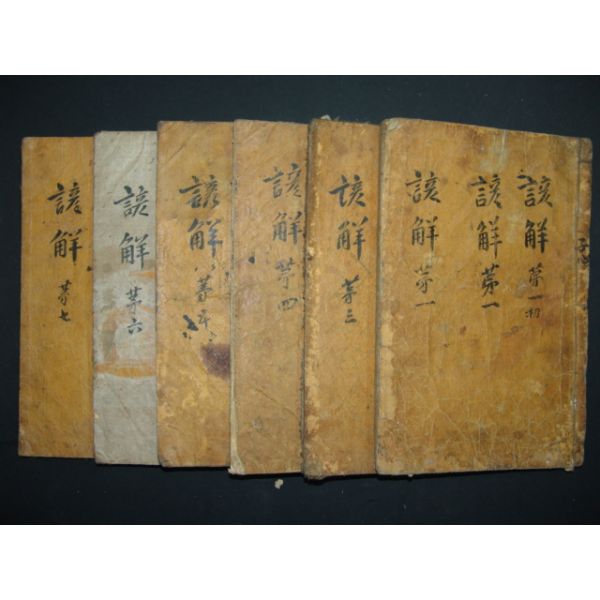 諺解 第一初
諺解 第一
諺解 第一
諺解 第三
諺解 第四
諺解 第五
諺解 第六
諺解 第七